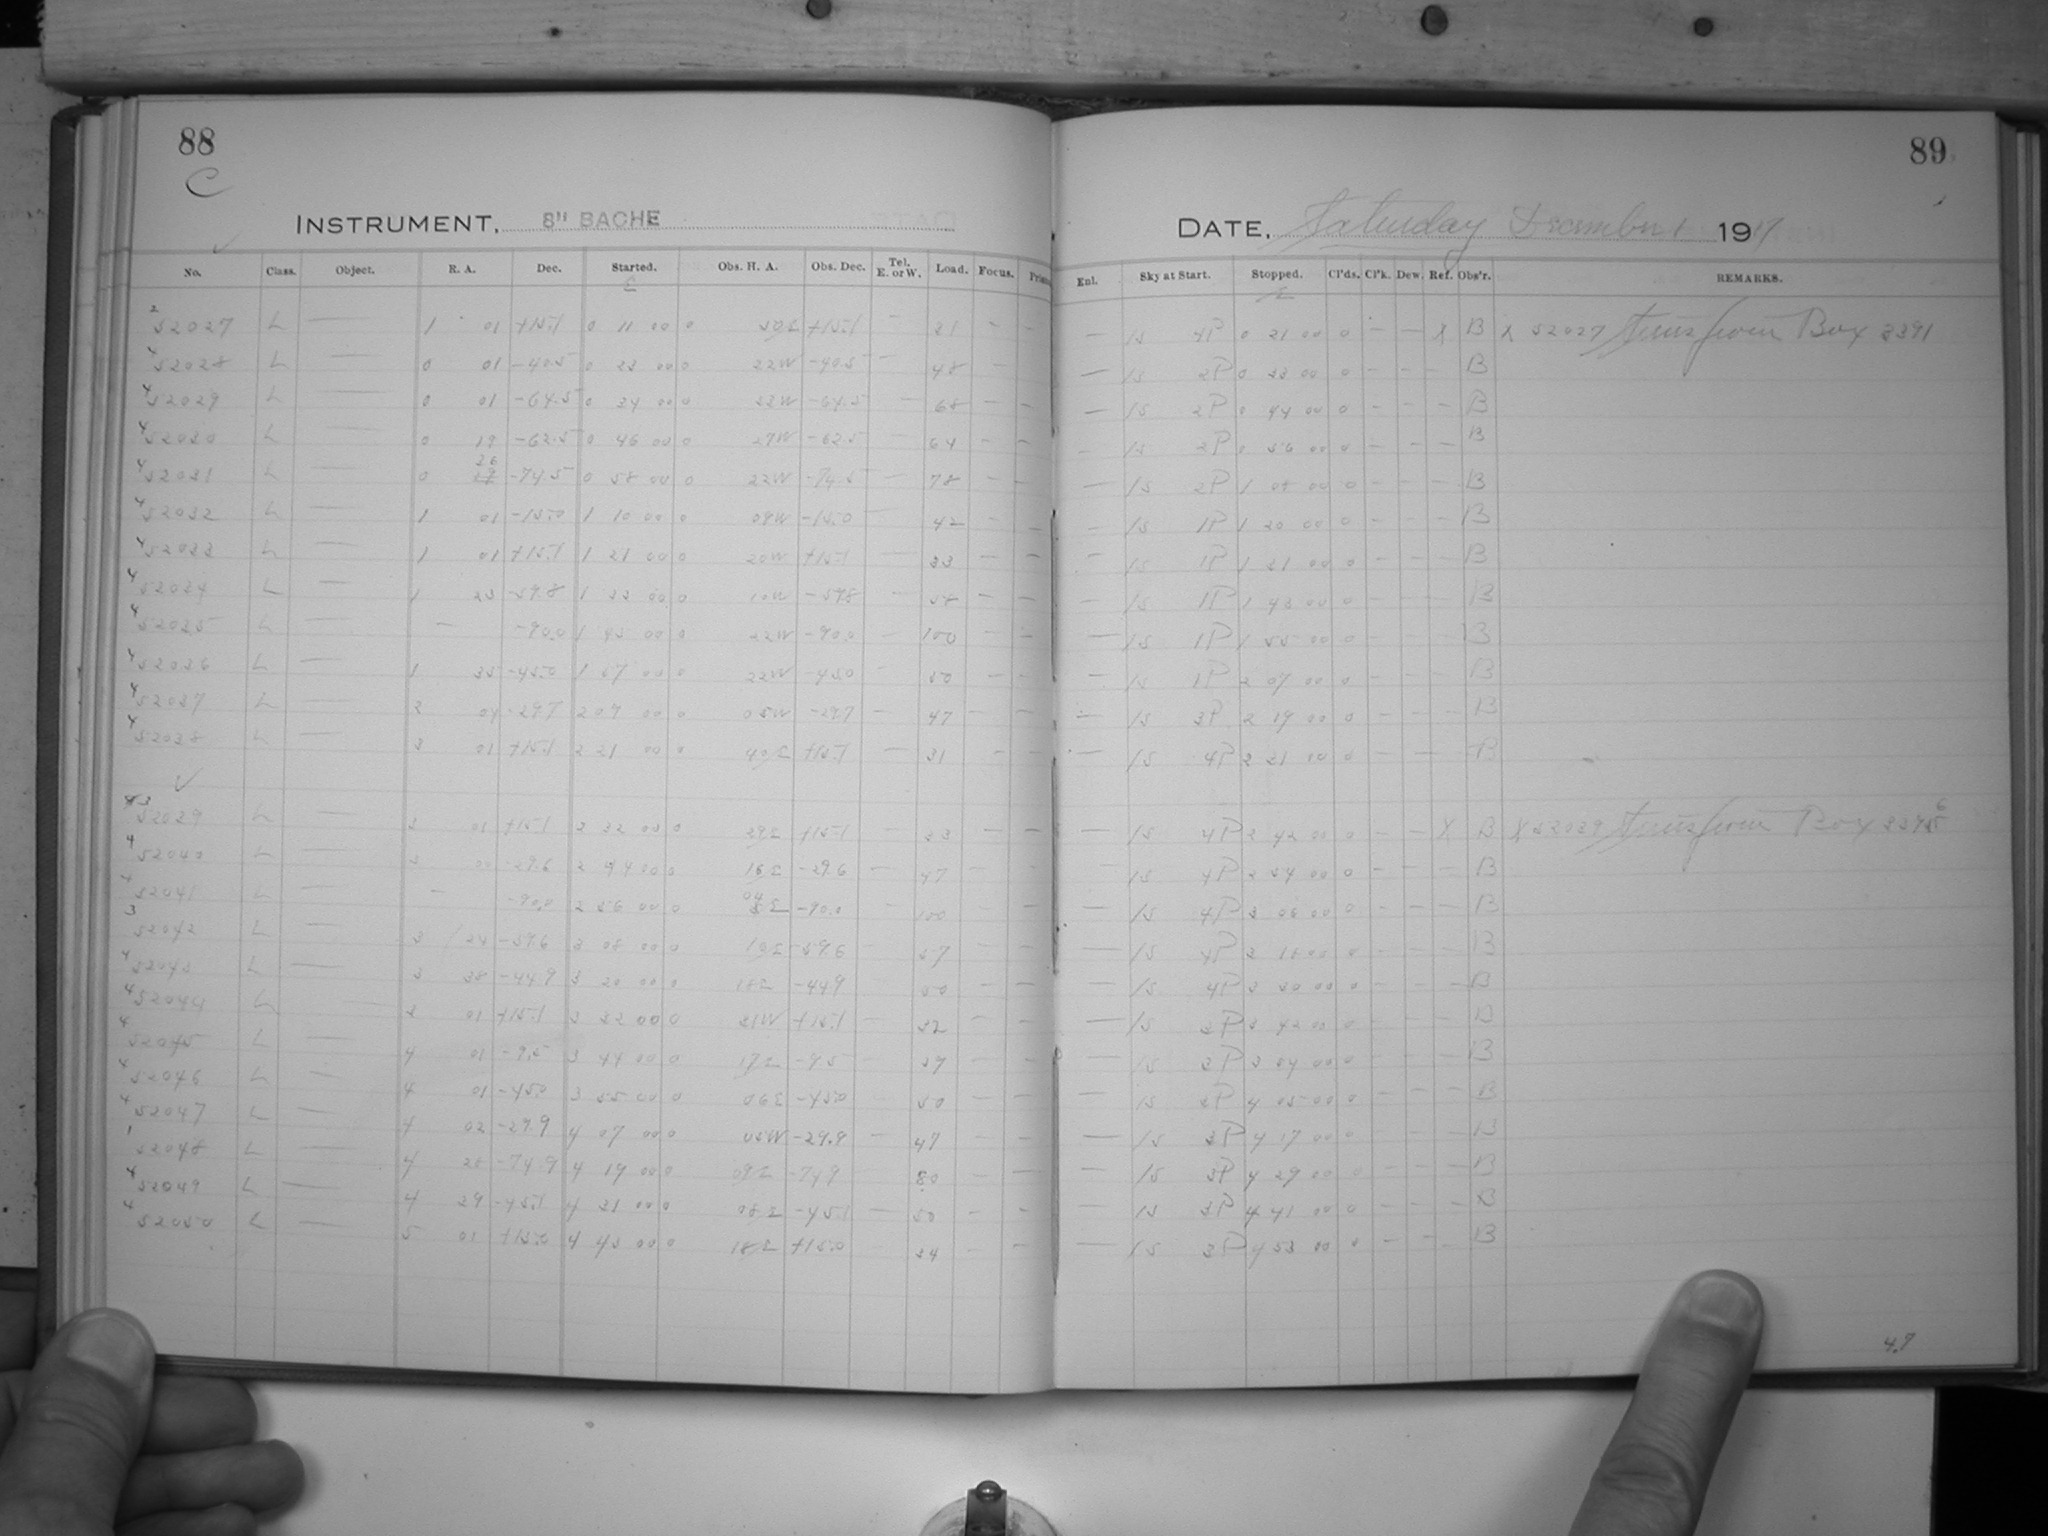 88
C
INSTRUMENT, 8" BACHE
No. Class. Object. R. A. Dec. Started. Obs. H. A. Obs. Dec. Tel. E. or W. Load. Focus.
52027 L — 1 01 +15.1 0 11 00 0 50E +15.1 — 31 — —
52028 L — 0 01 -40.5 0 23 00 0 22W -40.5 — 48 —
52029 L — 0 01 -64.5 0 34 00 0 33W -64.5 — 68 — —
52030 L — 0 19 -62.5 0 46 00 0 27W -62.5 — 64 — —
52031 L — 0 36 -74.5 0 58 00 0 22W -74.5 — 78 — —
52032 L — 1 01 -15.0 1 10 00 0 09W -15.0 — 42 — —
52033 L — 1 01 +15.1 1 21 00 0 20W +15.1 — 33 — —
52034 L — 1 23 -59.8 1 33 00 0 10W -59.8 — 58 — —
52035 L — — -90.0 1 45 00 0 22W -90.0 — 100 — —
52036 L — 1 35 -45.0 1 57 00 0 22W -45.0 — 50 — —
52037 L — 2 04 -29.7 2 09 00 0 05W -29.7 — 47 — —
52038 L — 3 01 +15.1 2 21 00 0 40E +15.1 — 31 — —
52039 L — 3 01 +15.1 2 32 00 0 29E +15.1 — 33 — —
52040 L — 3 00 -29.6 2 44 00 0 16E -29.6 — 47 — —
52041 L — — -90.0 2 56 00 0 04E -90.0 — 100 — —
52042 L — 3 24 -59.6 3 08 00 0 -59.6 — 57 — —
52043 L — 3 38 -44.9 3 20 00 0 18E -44.9 50 — —
52044 L — 3 01 +15.1 3 32 00 0 31W +15.1 — 32 — —
52045 L — 4 01 -9.5 3 44 00 0 17E -9.5 — 39 — —
52046 L — 4 01 -45.0 3 55 00 0 06E -45.0 50 — —
52047 L — 4 02 -29.9 4 07 00 0 05W -29.9 — 47 — —
52048 L — 4 28 -74.9 4 19 00 0 09E -74.9 80 — —
52049 L — 4 29 -45.1 4 31 00 0 -45.1 — 50 — —
52050 L — 5 01 +15.0 4 43 00 0 18E +15.0 34 — —
89
DATE, Saturday December 1 1917
Enl. Sky at Start. Stopped. Cl'ds. Cl'k. Dew. Ref. Obs'r. REMARKS.
— 15 4P 0 21 00 0 — — X B X 52027 trans from Box 3391
— 15 2P 0 33 00 0 — — — B
— 15 2P 0 44 00 0 — — — B
15 2P 0 56 00 0 — — — B
— 15 2P 1 08 00 0 — — — B
15 1P 1 20 00 0 — — — B
— 15 1P 1 31 00 0 — — — B
15 1P 1 43 00 0 — — — B
— 15 1P 1 55 00 0 — — — B
— 15 1P 2 07 00 0 — — — B
— 15 3P 2 19 00 0 — — — B
— 15 4P 2 31 00 0 — — — B
— 15 4P 2 42 00 0 — — X B X 52039 trans from Box
— 15 4P 2 54 00 0 — — — B
— 15 4P 3 06 00 0 — — — B
— 15 4P 3 18 00 0 — — — B
— 15 4P 3 30 00 0 — — — B
— 15 3P 3 42 00 0 — — — B
— 15 3P 3 54 00 0 — — — B
— 15 3P 4 05 00 0 — — — B
— 15 3P 4 17 00 0 — — — B
— 15 3P 4 29 00 0 — — — B
— 15 3P 4 41 00 0 — — — B
— 15 3P 4 53 00 0 — — — B
4.7